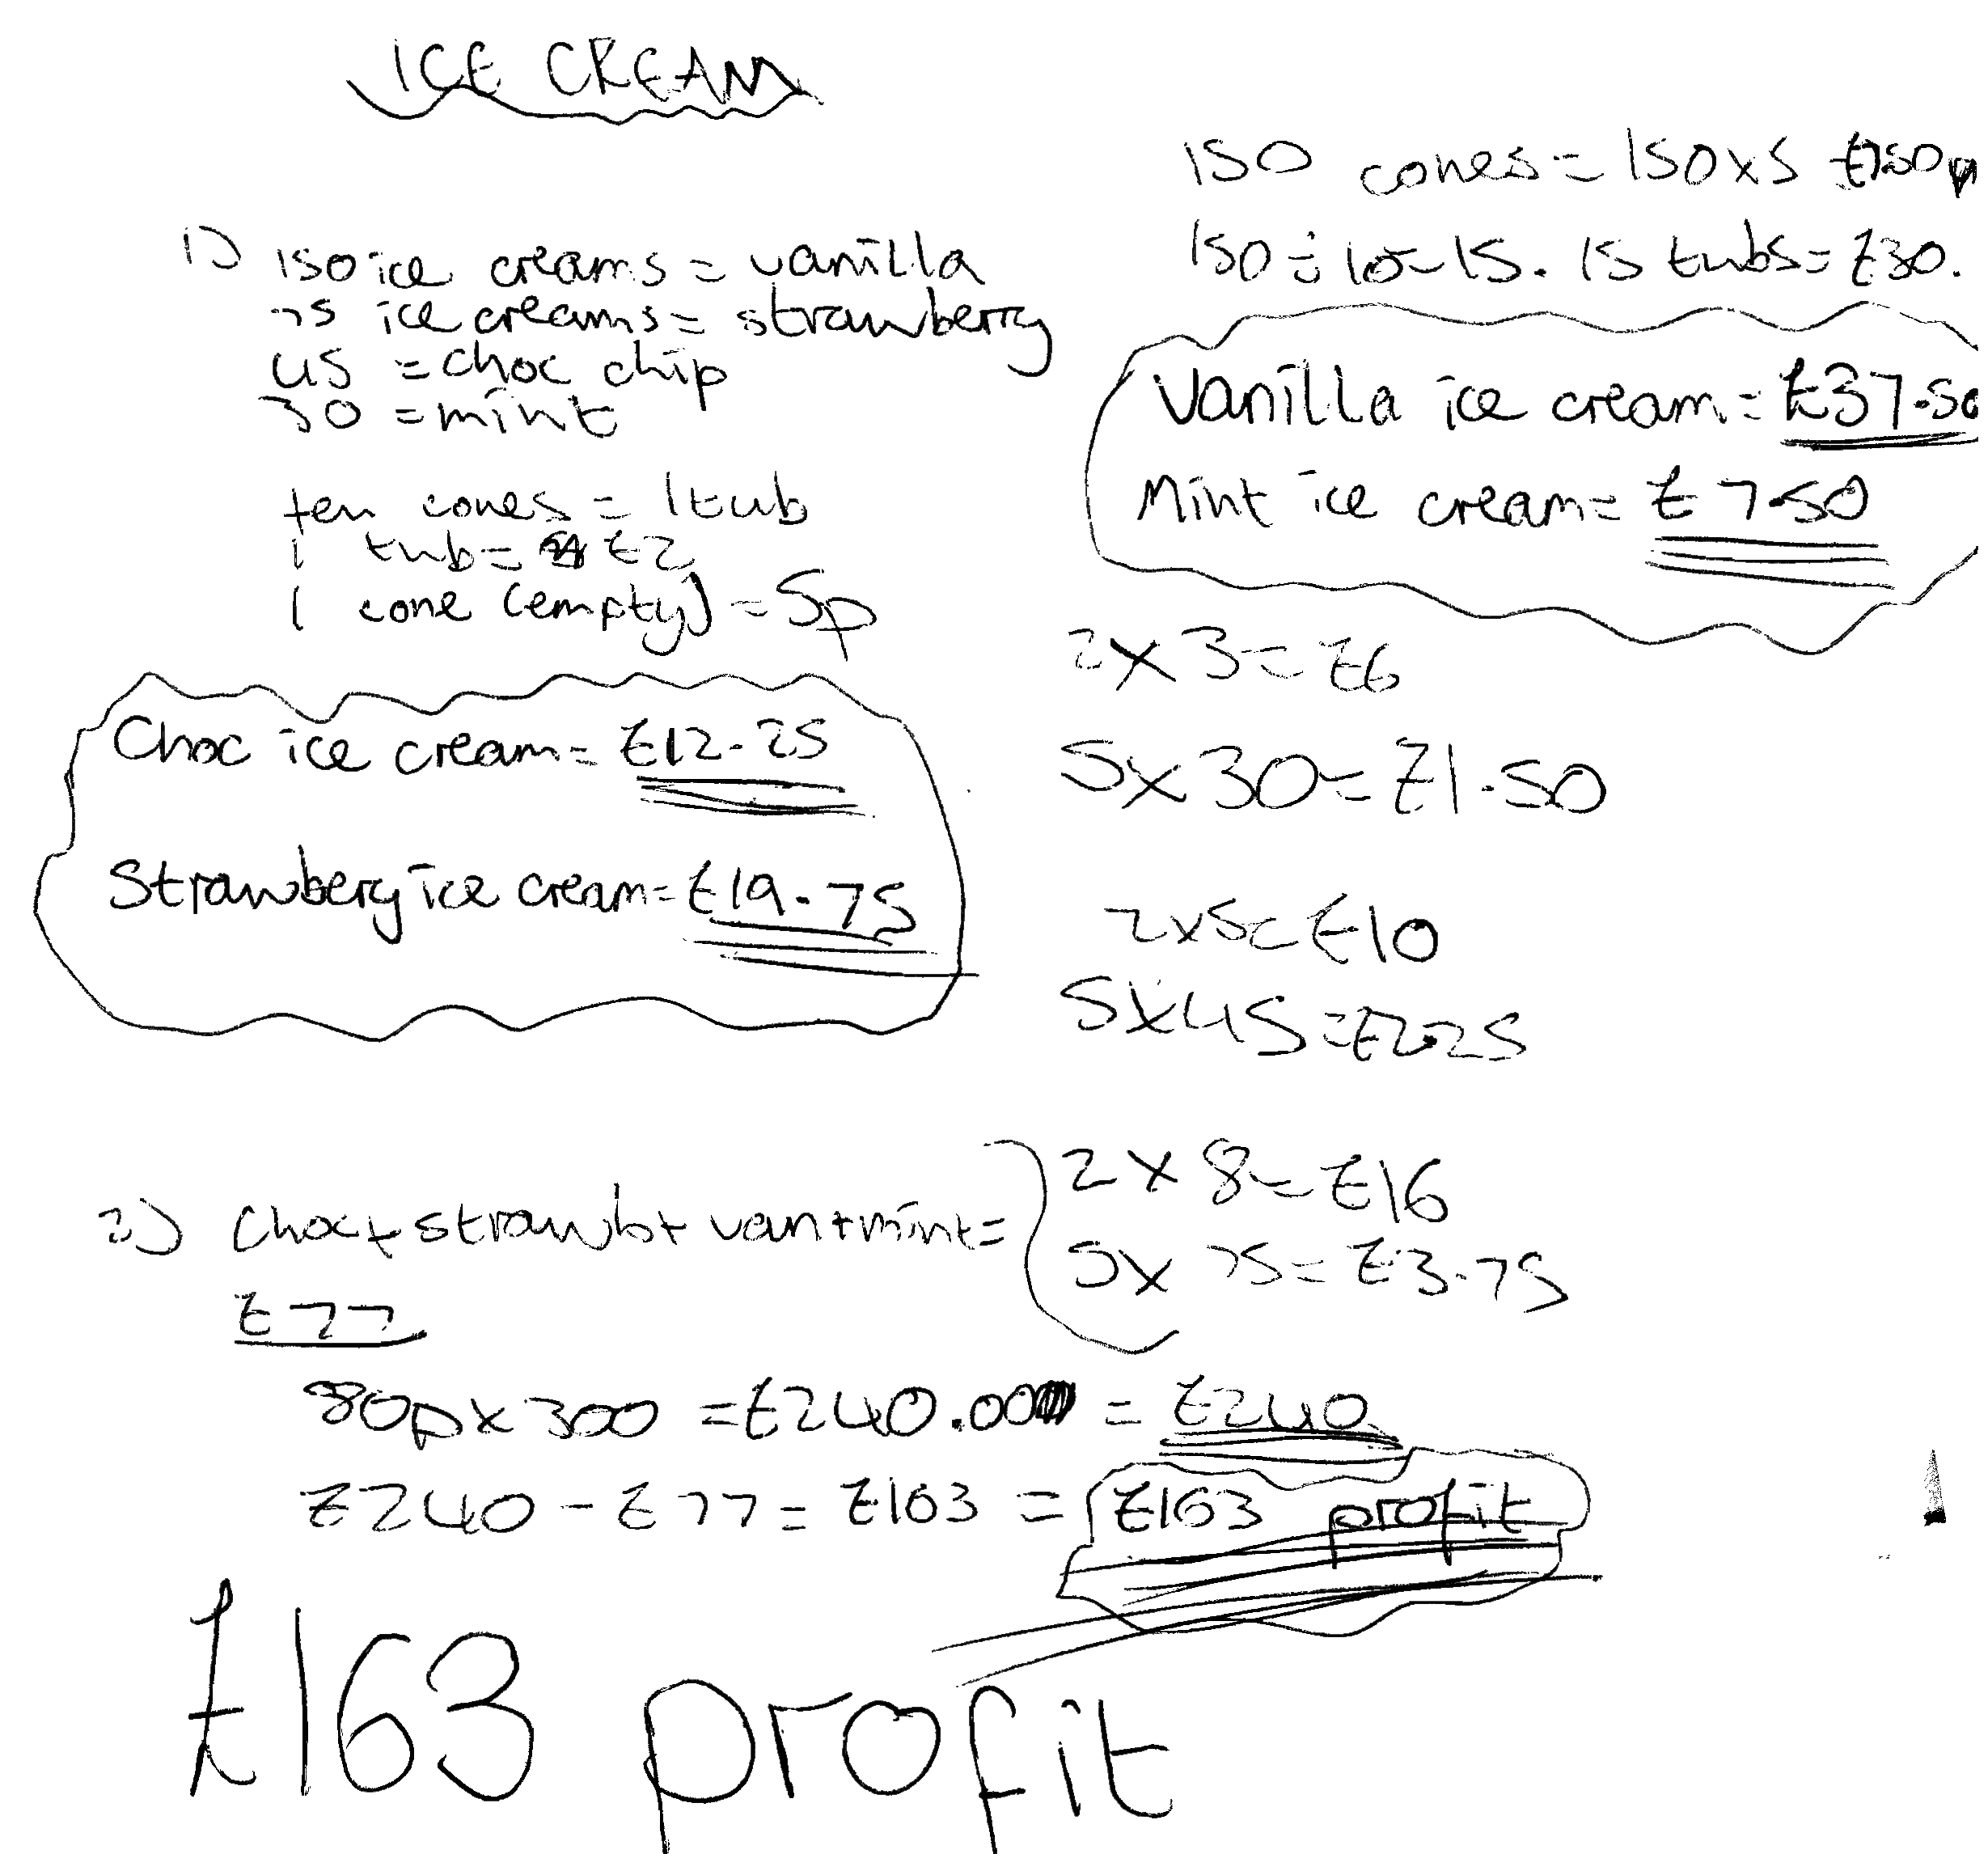 ICE CREAM
1) 150 ice creams = vanilla
75 ice creams = strawberry
45 = choc chip
30 = mint
ten cones = 1 tub
1 tub = £2
1 cone (empty) = 5p
Choc ice cream = £12.25
Strawbery ice cream = £19.75
150 cones = 150x5 £7.50p
150 ÷ 10 = 15. 15 tubs = £30.
Vanilla ice cream = £37.50
Mint ice cream = £7.50
2 x 3 = £6
5 x 30 = £1.50
2x5 = £10
5x45 = £2.25
2 x 8 = £16
5x 75 = £3.75
2) Choc + strawb + van + mint =
£77
80p x 300 = £240.00 = £240
£240 - £77 = £163 = £163 profit
£163 profit